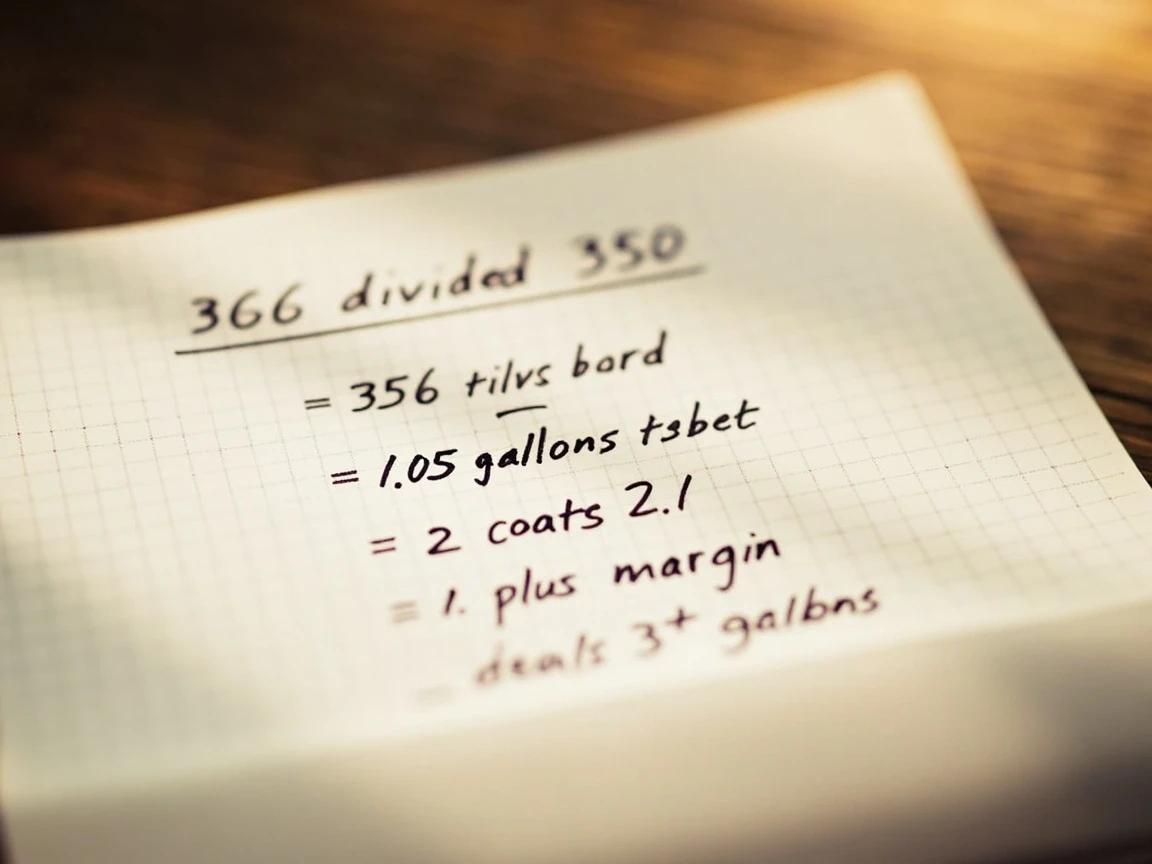 366 divided 350
= 356 tilvs bord
= 1.05 gallons tsbet
= 2 coats 2.1
= 1. plus margin
deals 3+ galbns